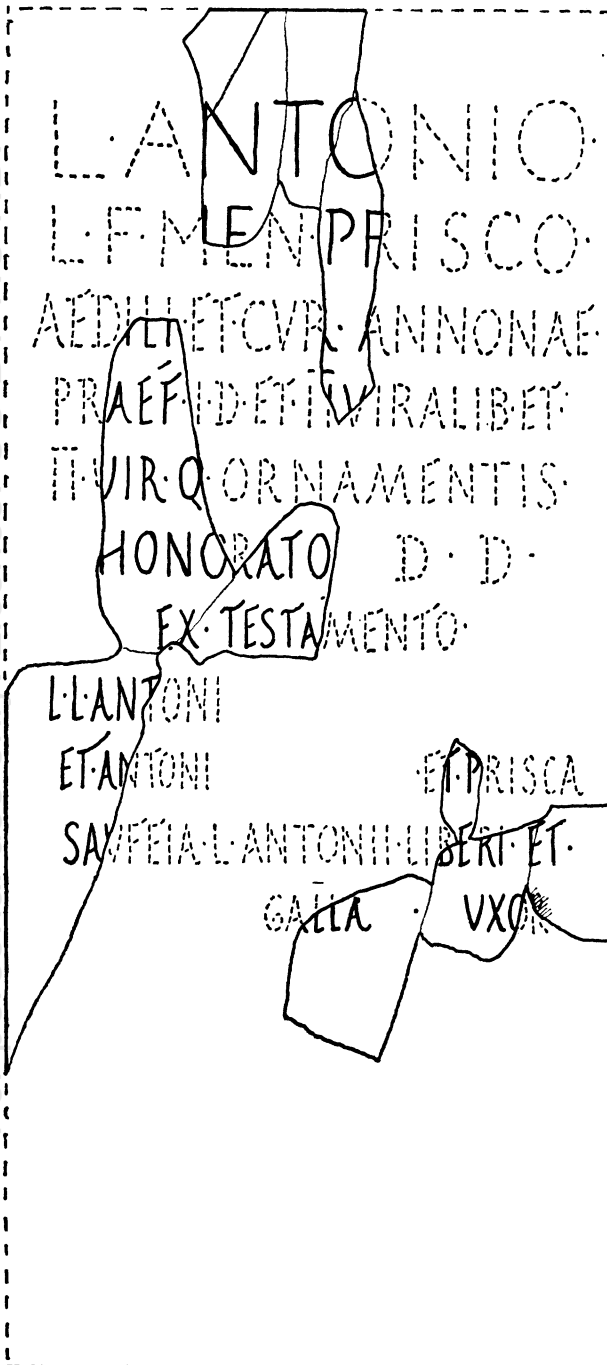 L·ANTONIO·
L·F·MEN PRISCO·
AÉDILI ET·CVR·ANNONAE·
PRAÉF·I·D·ET·IIVIRALIB·ET·
II·VIR·Q·ORNAMENTIS·
HONORATO D·D·
EX·TESTAMENTO·
L·L·ANTONI
ET·ANTONI ·ET·PRISCA
SAVFEIA·L·ANTONII·LIBERI·ET·
GALLA · VXOR